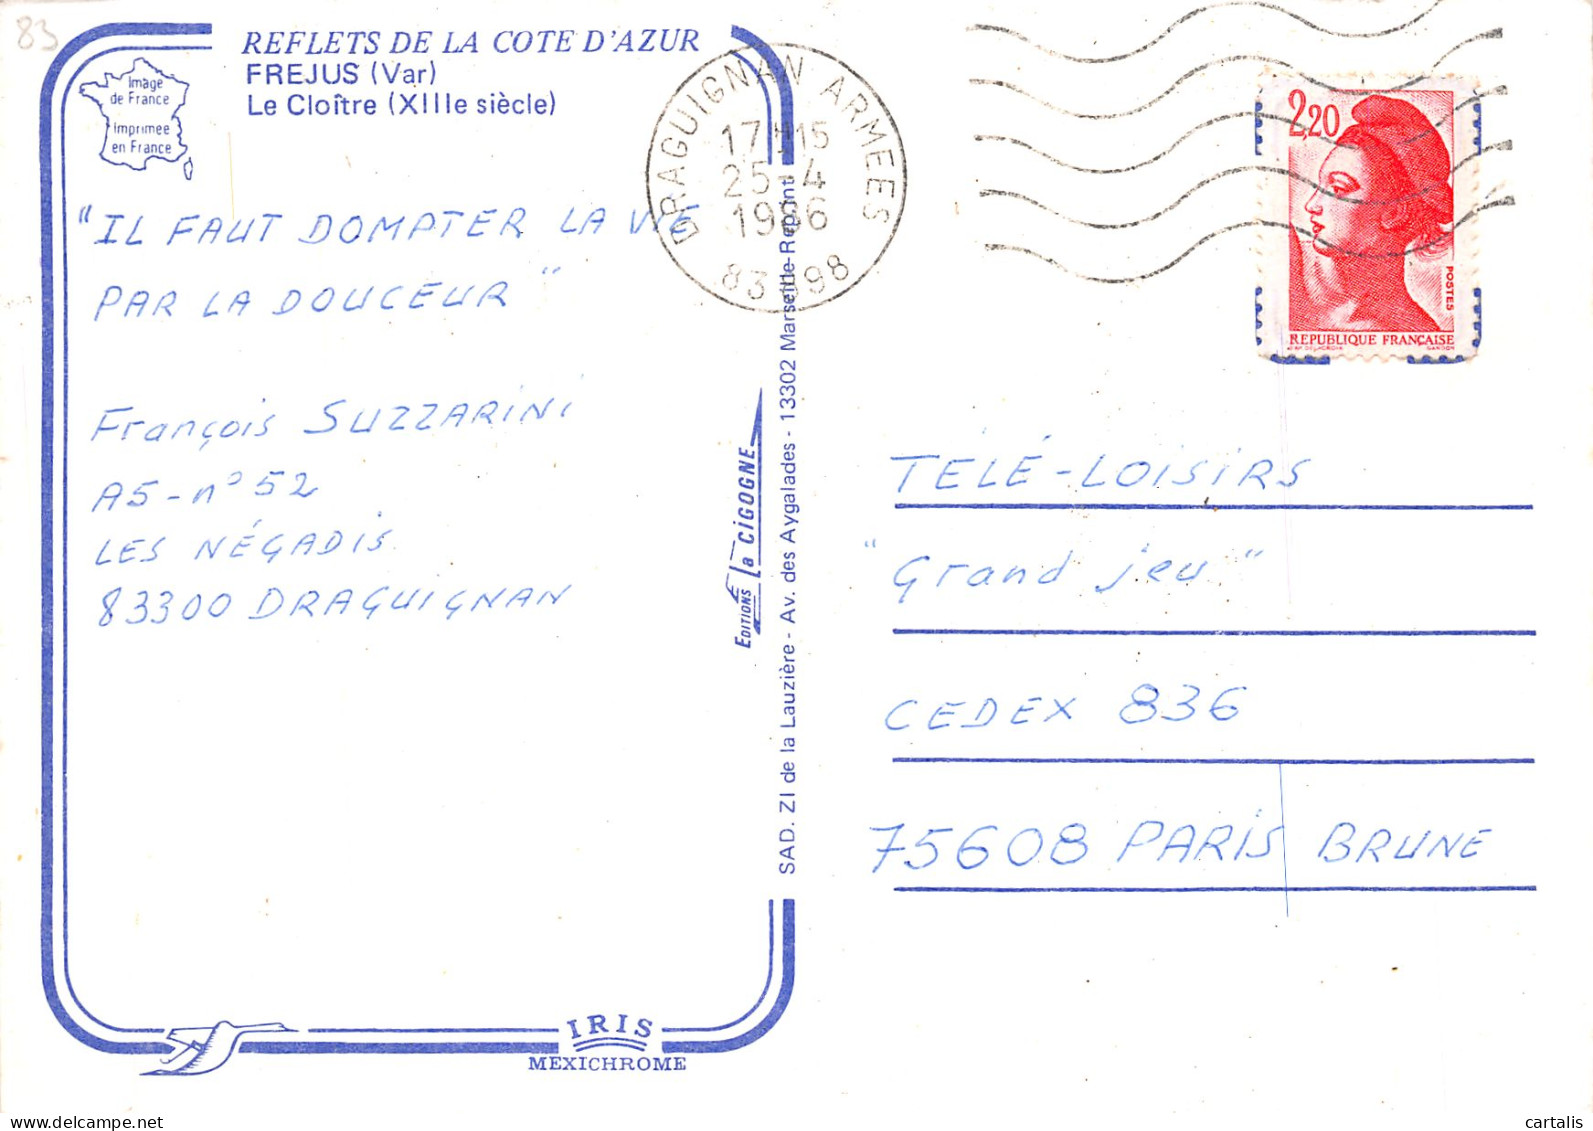 83
REFLETS DE LA COTE D'AZUR
FREJUS (Var)
Le Cloître (XIIIe siècle)
Image
de France
Imprimée
en France
"IL FAUT DOMPTER LA VIE
PAR LA DOUCEUR"
François SUZZARINI
A5-n°52
LES NÉGADIS
83300 DRAGUIGNAN
IRIS
MEXICHROME
EDITIONS la CIGOGNE
SAD. ZI de la Lauzière - Av. des Aygalades - 13302 Marseille-Repant
DRAGUIGNAN ARMEES
17H15
25-4
1986
83998
2,20
POSTES
REPUBLIQUE FRANÇAISE
D'AP. DELACROIX GANDON
TÉLÉ-LOISIRS
"Grand jeu"
CEDEX 836
75608 PARIS BRUNE
cartalis | delcampe.net